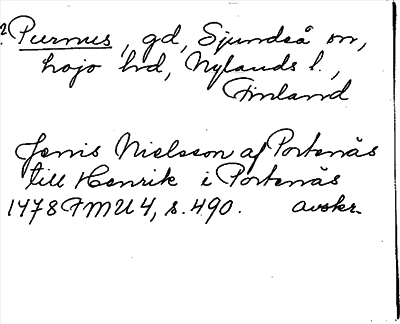 ? Purnus, gd, Sjundeå sn,
Lojo hd, Nylands l.,
Finland
Jenis Nielsson af Portenäs
till Henrik i Portenäs
1478 FMU 4, s. 490. avskr.